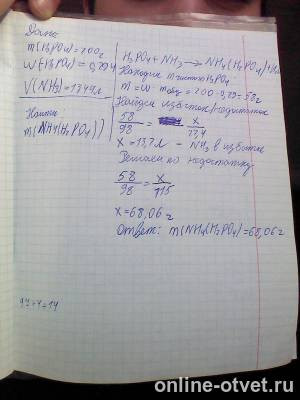 Дано:
m(H3PO4)=200г
W(H3PO4)=0,294
V(NH3)=13,49л
Найти
m(NH4(H2PO4))
H3PO4+NH3→NH4(H2PO4)
Находим m чист H3PO4
m=W·mобщ=200·0,29=58г
Найдем избыток/недостаток
58/98=x/22,4
x=13,7л - NH3 в избытке
Решаем по недостатку
58/98=x/115
x=68,06г
Ответ: m(NH4(H2PO4)=68,06г
97+4+14
online-otvet.ru